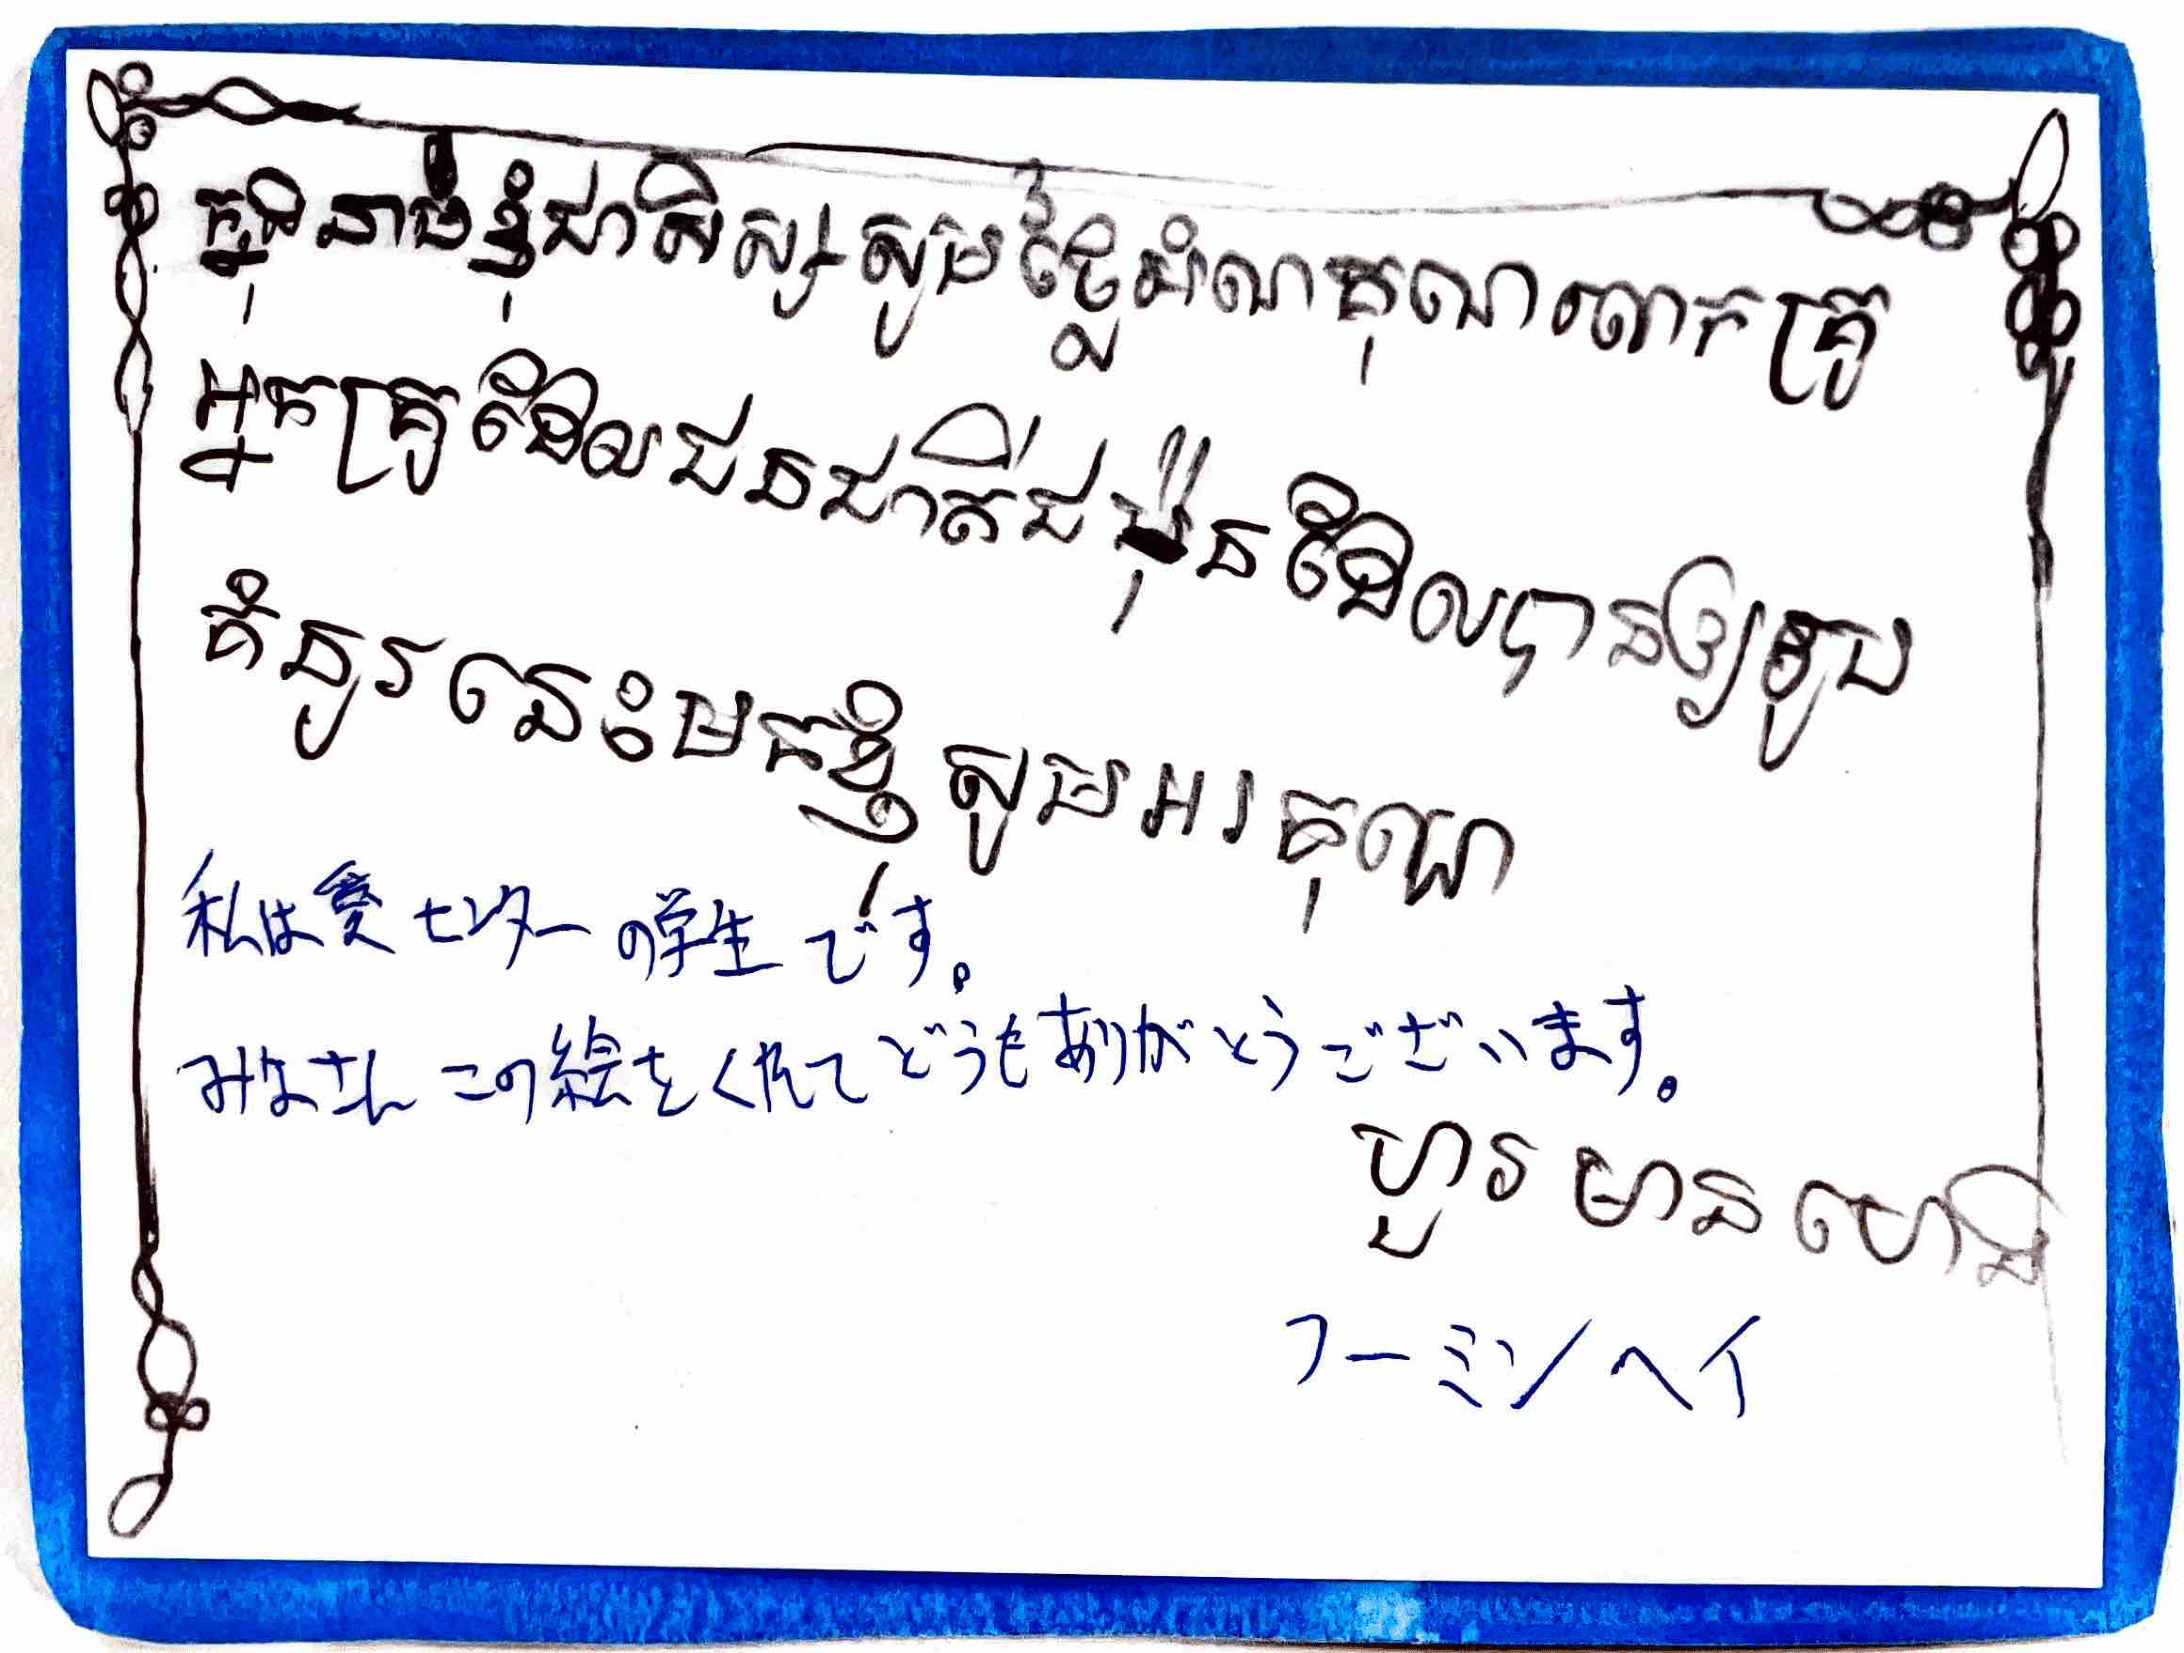 ក្នុងនាមខ្ញុំជាសិស្ស សូមថ្លែងអំណរគុណលោកគ្រូ
អ្នកគ្រូដែលជនជាតិជប៉ុនដែលបានឲ្យរូប
គំនូរនេះមកខ្ញុំ សូមអរគុណ
私は愛センターの学生です。
みなさんこの絵をくれてどうもありがとうございます。
ហួរ មាន ហេង
フーミンヘイ